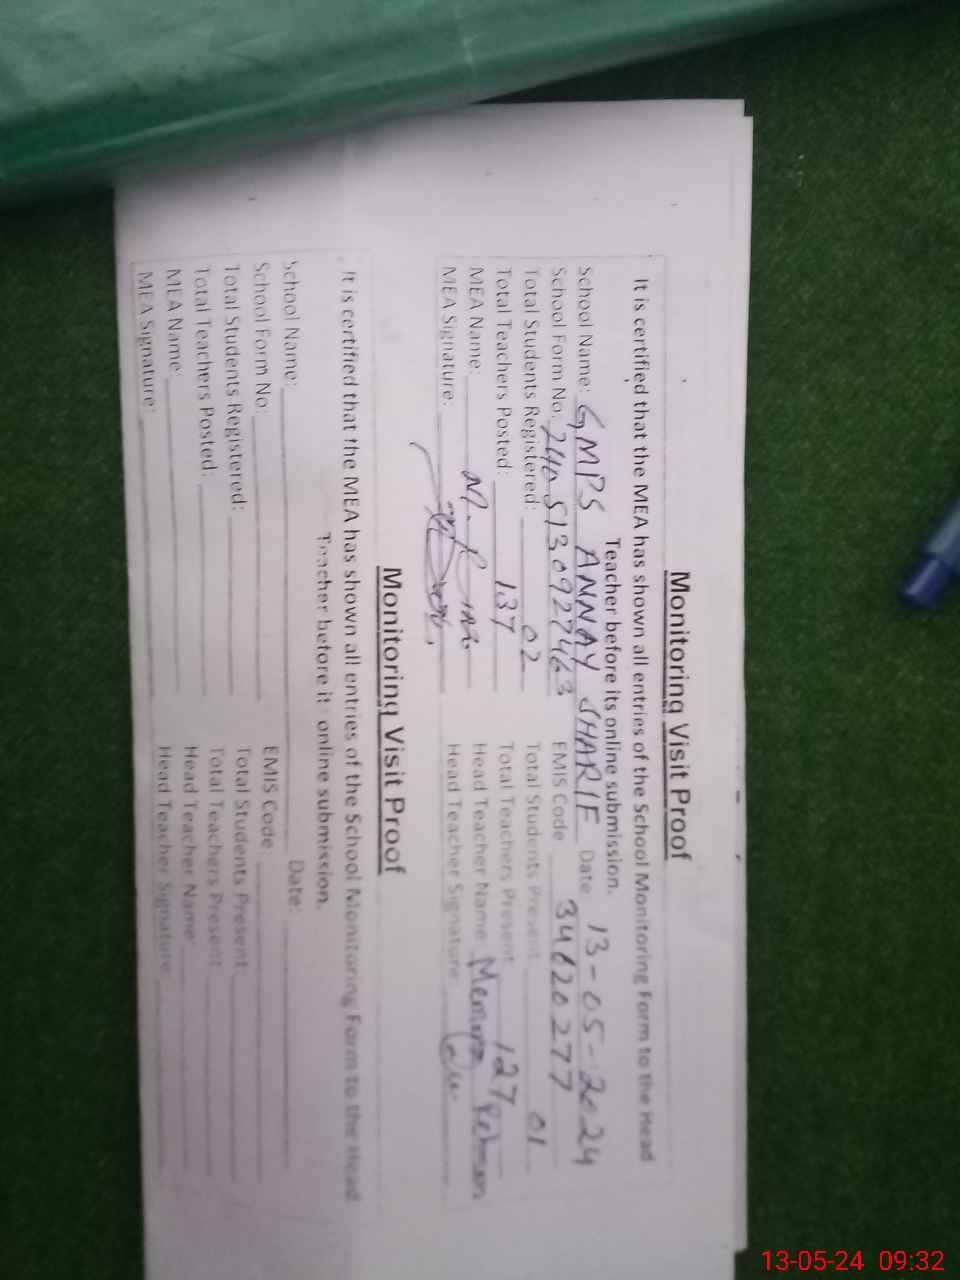 Monitoring Visit Proof
It is certified that the MEA has shown all entries of the School Monitoring Form to the Head
Teacher before its online submission.
School Name: GMPS ANNAY SHARIF Date 13-05-2024
School Form No. 2405130927463 EMIS Code 34620277
Total Students Registered: 02 Total Students Present 01
Total Teachers Posted: 137 Total Teachers Present 127
MEA Name: Head Teacher Name Rehman
MEA Signature: Head Teacher Signature
Monitoring Visit Proof
It is certified that the MEA has shown all entries of the School Monitoring Form to the Head
Teacher before it online submission.
School Name: Date:
School Form No: EMIS Code:
Total Students Registered: Total Students Present
Total Teachers Posted: Total Teachers Present
MEA Name: Head Teacher Name
MEA Signature: Head Teacher Signature
13-05-24 09:32